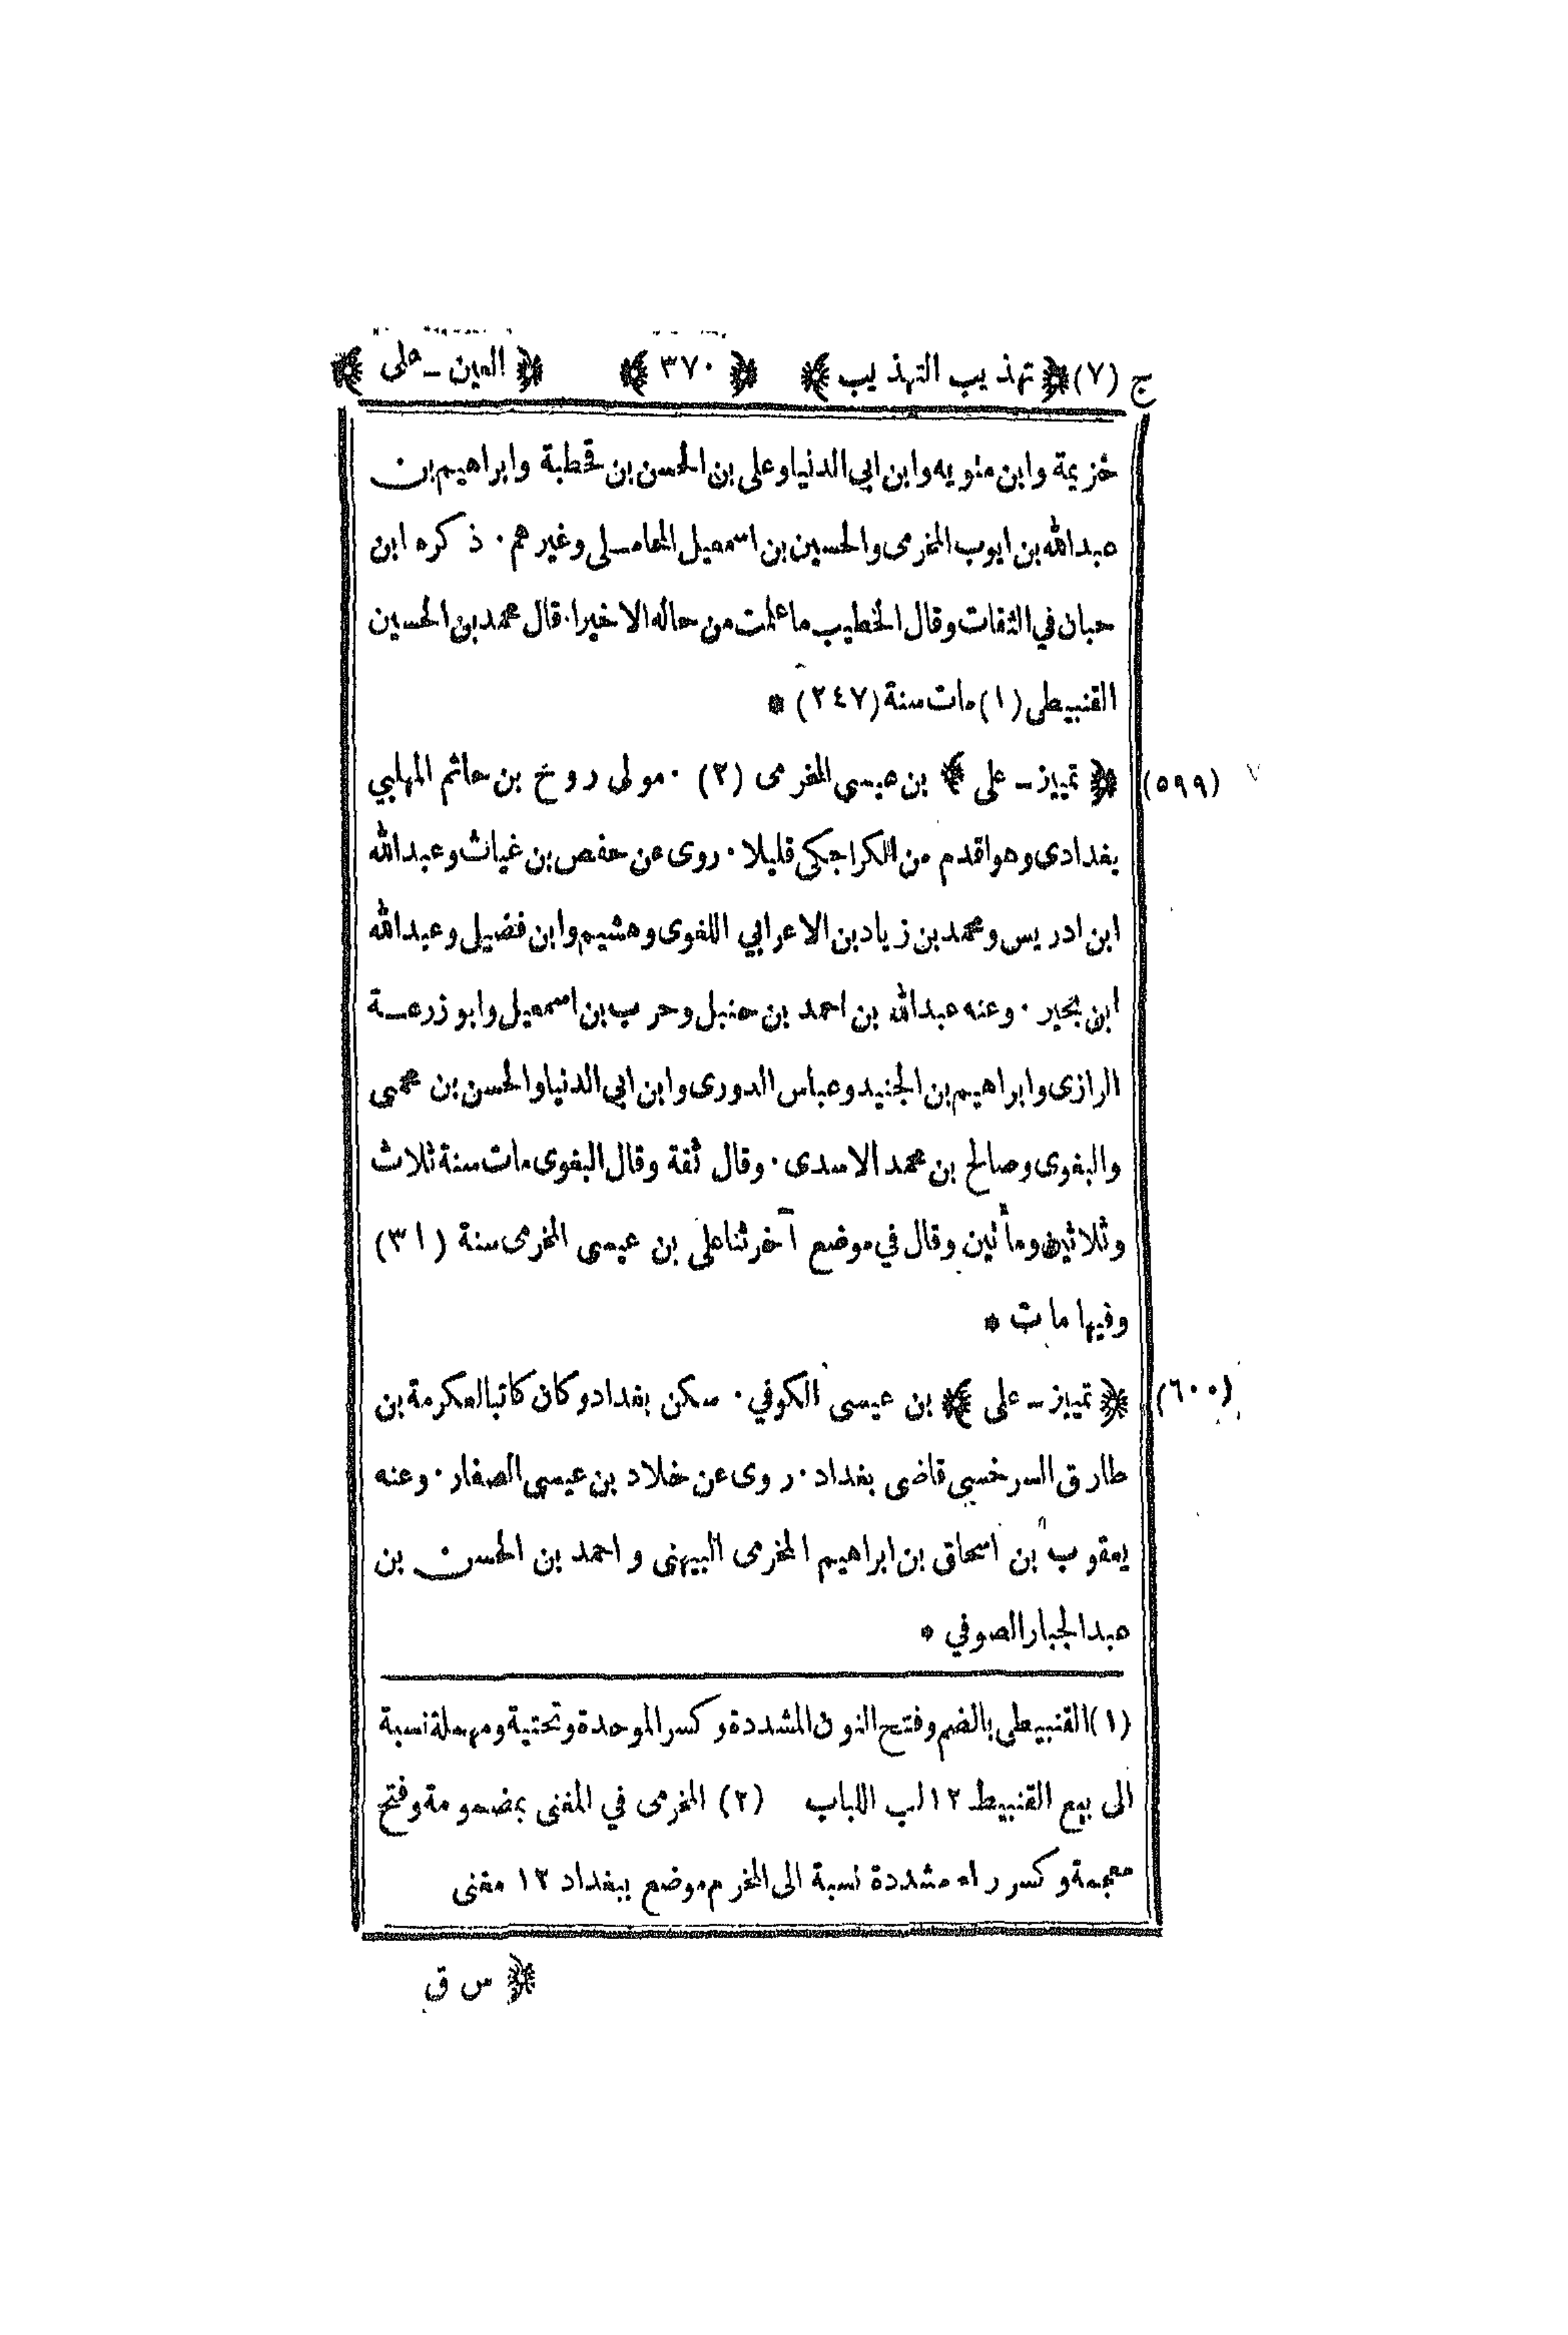 ج (٧) ﴿ تهذيب التهذيب ﴾ ﴿ ٣٧٠ ﴾ ﴿ العين ـ على ﴾
خزيمة وابن متويه وابن ابي الدنيا وعلى بن الحسن بن قحطبة وابراهيم بن
عبدالله بن ايوب المخرمى والحسين بن اسمعيل المحاملى وغيرهم ٠ ذكره ابن
حبان في الثقات وقال الخطيب ما علمت من حاله الا خيرا ٠ قال محمد بن الحسين
القنبيطى (١) مات سنة (٢٤٧) *
(٥٩٩) ﴿ تمييز ـ على ﴾ بن عيسى المخرمى (٢) ٠ مولى روح بن حاتم المهلبي
بغدادى وهو اقدم من الكراجكى قليلا ٠ روى عن حفص بن غياث وعبدالله
ابن ادريس ومحمد بن زياد بن الاعرابي اللغوى وهشيم وابن فضيل وعبدالله
ابن بجير ٠ وعنه عبدالله بن احمد بن حنبل وحرب بن اسمعيل وابو زرعة
الرازى وابراهيم بن الجنيد وعباس الدورى وابن ابي الدنيا والحسن بن محمى
والبغوى وصالح بن محمد الاسدى ٠ وقال ثقة وقال البغوى مات سنة ثلاث
وثلاثين ومأتين وقال في موضع آخر ثنا على بن عيسى المخرمى سنة (٣١)
وفيها مات *
(٦٠٠) ﴿ تمييز ـ على ﴾ بن عيسى الكوفي ٠ سكن بغداد وكان كاتبا لعكرمة بن
طارق السرخسى قاضى بغداد ٠ روى عن خلاد بن عيسى الصفار ٠ وعنه
يعقوب بن اسحاق بن ابراهيم المخرمى البيهنى واحمد بن الحسن بن
عبدالجبار الصوفي *
(١) القنبيطى بالضم وفتح النون المشددة وكسر الموحدة وتحتية ومهملة نسبة
الى بيع القنبيط ١٢ لب اللباب (٢) المخرمى في المغنى بمضمومة وفتح
معجمة وكسر راء مشددة نسبة الى المخرم موضع ببغداد ١٢ مغنى
﴿ س ق